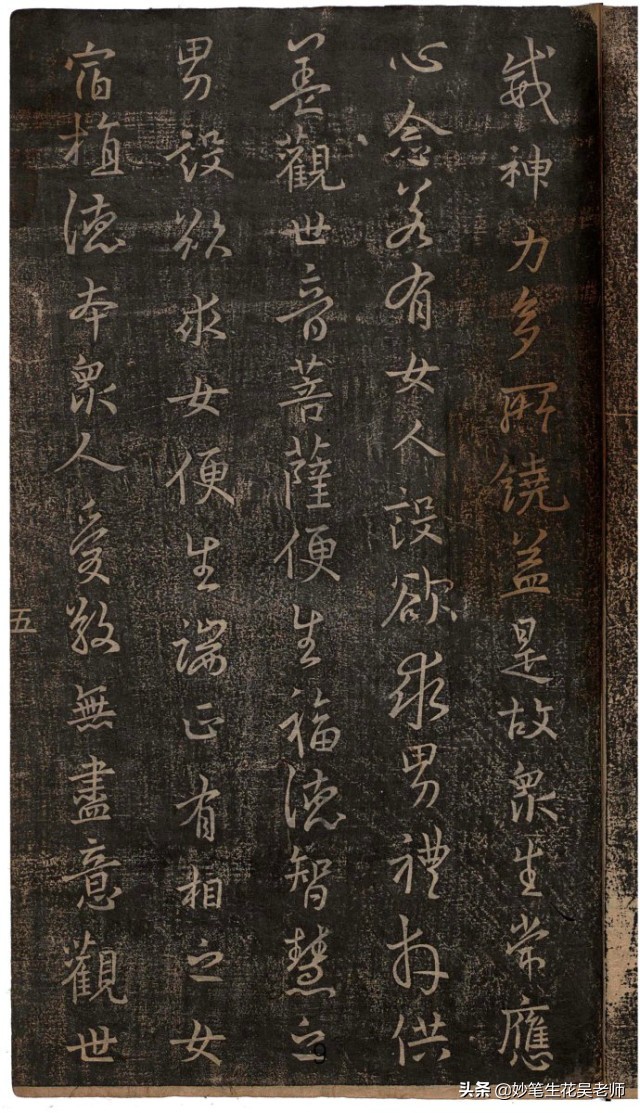 威神力多所饒益是故衆生常應
心念若有女人設欲求男禮拜供
養觀世音菩薩便生福德智慧之
男設欲求女便生端正有相之女
宿植德本衆人愛敬無盡意觀世
五
9
头条 @妙笔生花吴老师